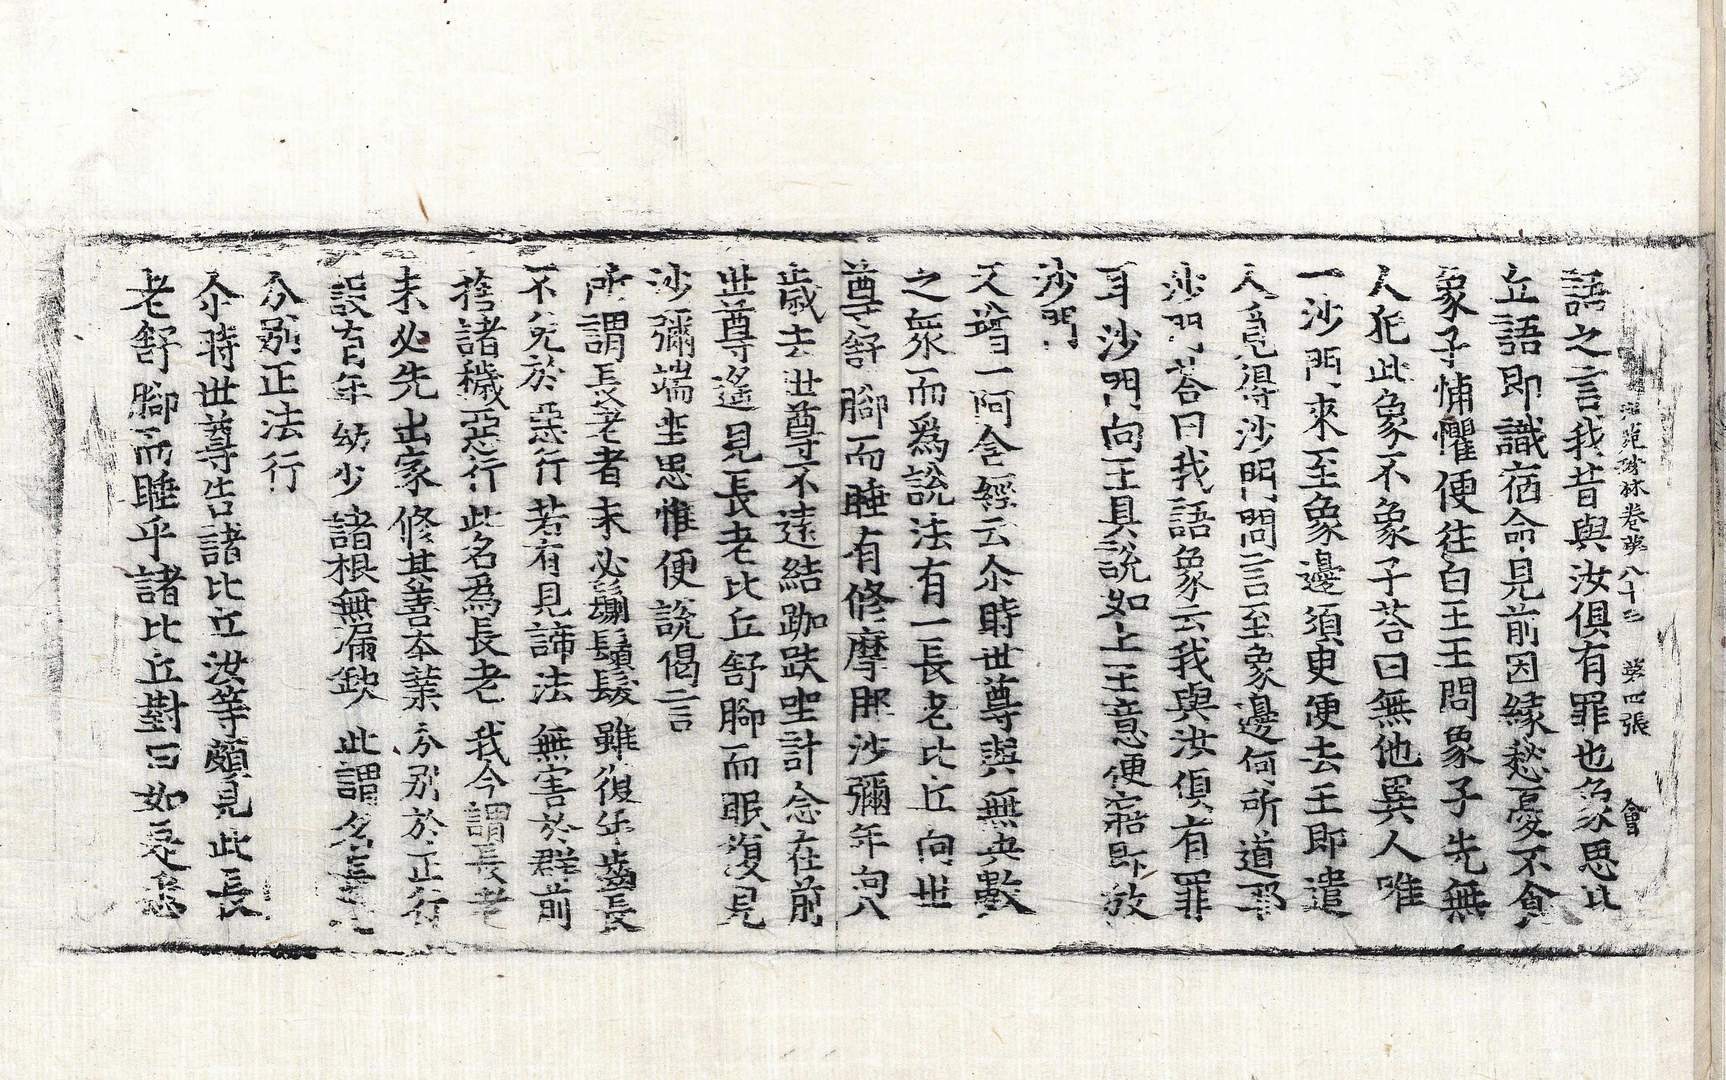 法苑珠林卷第八十三 第四張 會
語之言我昔與汝俱有罪也象思比
丘語即識宿命見前因緣愁憂不食
象子怖懼便往白王王問象子先無
人犯此象不象子荅曰無他異人唯
一沙門來至象邊須臾便去王即遣
人覓得沙門問言至象邊何所道耶
沙門荅曰我語象云我與汝俱有罪
耳沙門向王具說如上王意便寤即放
沙門
又增一阿含經云尒時世尊與無央數
之衆而爲說法有一長老比丘向世
尊舒腳而睡有修摩那沙彌年向八
歲去世尊不遠結跏趺坐計念在前
世尊遙見長老比丘舒腳而眠復見
沙彌端坐思惟便說偈言
所謂長老者 未必鬀鬚髮 雖復年齒長
不免於惡行 若有見諦法 無害於群前
捨諸穢惡行 此名爲長老 我今謂長老
未必先出家 修其善本業 分別於正行
設有年幼少 諸根無漏缺 此謂名長老
分別正法行
尒時世尊告諸比丘汝等頗見此長
老舒腳而睡乎諸比丘對曰如是